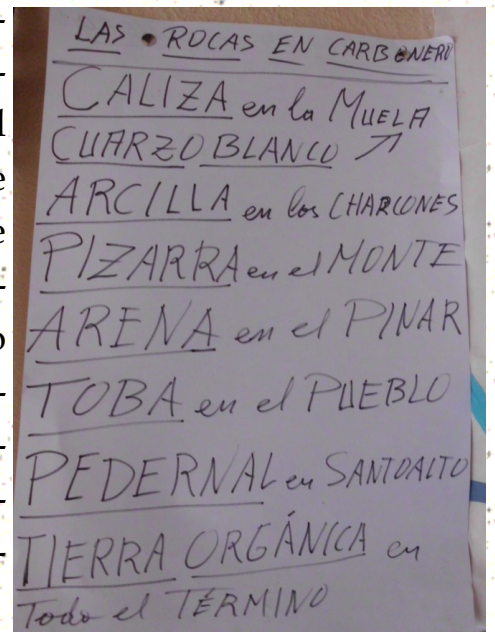 LAS • ROCAS EN CARBONERO
CALIZA en la MUELA
CUARZO BLANCO ↗
ARCILLA en los CHARCONES
PIZARRA en el MONTE
ARENA en el PINAR
TOBA en el PUEBLO
PEDERNAL en SANTOALTO
TIERRA ORGÁNICA en
Todo el TÉRMINO